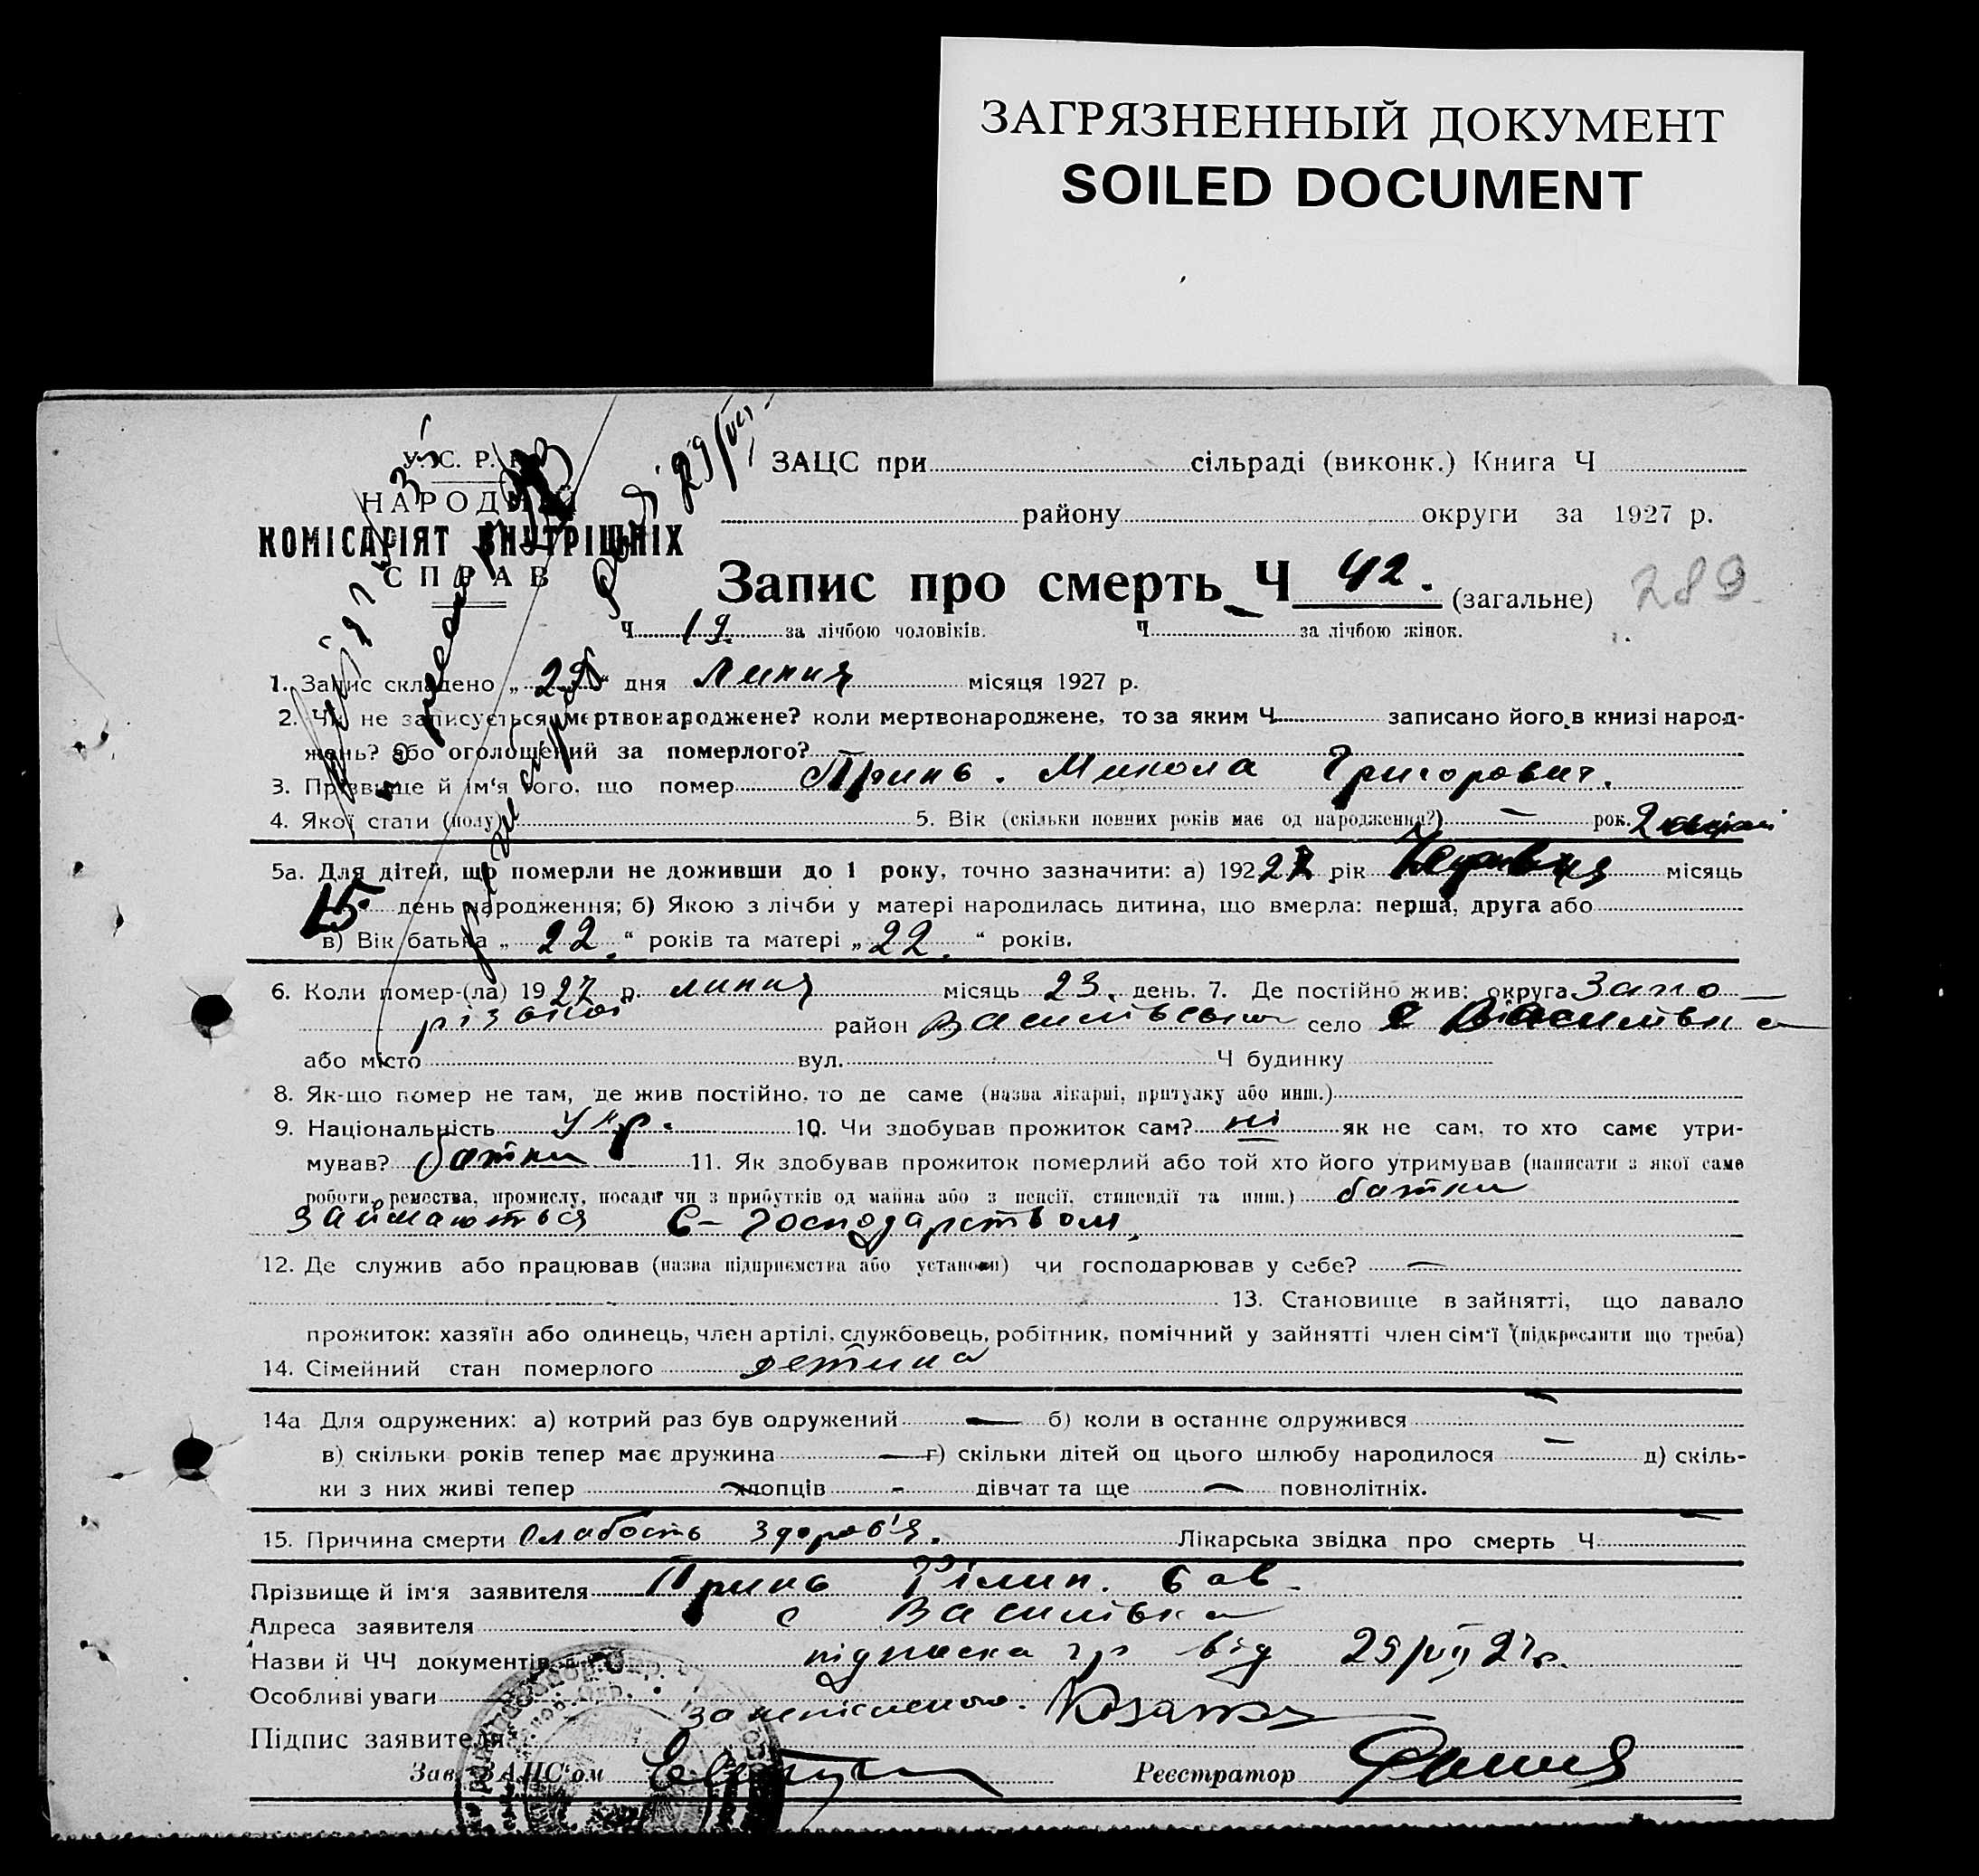 ЗАГРЯЗНЕННЫЙ ДОКУМЕНТ
SOILED DOCUMENT
У. С. Р. Р.
НАРОДНИЙ
КОМІСАРІЯТ ВНУТРІШНІХ
СПРАВ
29/VII
ЗАЦС при сільраді (виконк.) Книга Ч
району округи за 1927 р.
Запис про смерть Ч 42. (загальне) 289
Ч 19. за лічбою чоловіків. Ч за лічбою жінок.
1. Запис складено „ “ дня Липня місяця 1927 р.
2. Чи не записується мертвонароджене? коли мертвонароджене, то за яким Ч записано його в книзі народ-
жень? або оголошений за померлого?
3. Прізвище й ім‘я того, що помер Принь. Микола Григорович.
4. Якої стати (полу) 5. Вік (скільки повних років має од народження?) — рок. 2
5а. Для дітей, що померли не доживши до 1 року, точно зазначити: а) 192 27 рік місяць
15 день народження; б) Якою з лічби у матері народилась дитина, що вмерла: перша, друга або
в) Вік батька „ 22. “ років та матері „ 22. “ років.
6. Коли помер-(ла) 1927 р. липня місяць 23. день. 7. Де постійно жив: округа Запо—
різької район Василівська село с Василівка
або місто вул. Ч будинку
8. Як-що помер не там, де жив постійно, то де саме (назва лікарні, притулку або инш.)
9. Національність Укр. 10. Чи здобував прожиток сам? ні як не сам, то хто саме утри-
мував? батьки 11. Як здобував прожиток померлий або той хто його утримував (написати з якої саме
роботи, ремества, промислу, посади чи з прибутків од майна або з пенсії, стипендії та инш.) батьки
займаються С-господарством.
12. Де служив або працював (назва підприємства або установи) чи господарював у себе? —
13. Становище в зайнятті, що давало
прожиток: хазяїн або одинець, член артілі, службовець, робітник, помічний у зайнятті член сім‘ї (підкреслити що треба)
14. Сімейний стан померлого детина
14а Для одружених: а) котрий раз був одружений — б) коли в останнє одружився —
в) скільки років тепер має дружина — г) скільки дітей од цього шлюбу народилося — д) скіль-
ки з них живі тепер — хлопців - дівчат та ще — повнолітніх.
15. Причина смерти Слабость здоров'я. Лікарська звідка про смерть Ч —
Прізвище й ім‘я заявителя Принь Філип. Сав.
Адреса заявителя с Василівка
Назви й ЧЧ документів підписка гр від 29/VII 27р.
Особливі уваги
Підпис заявителя
Зав. ЗАЦС‘ом Реєстратор